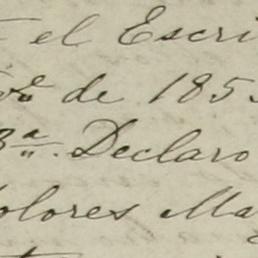 el Escri
de 185
3ª Declaro
Dolores Ma